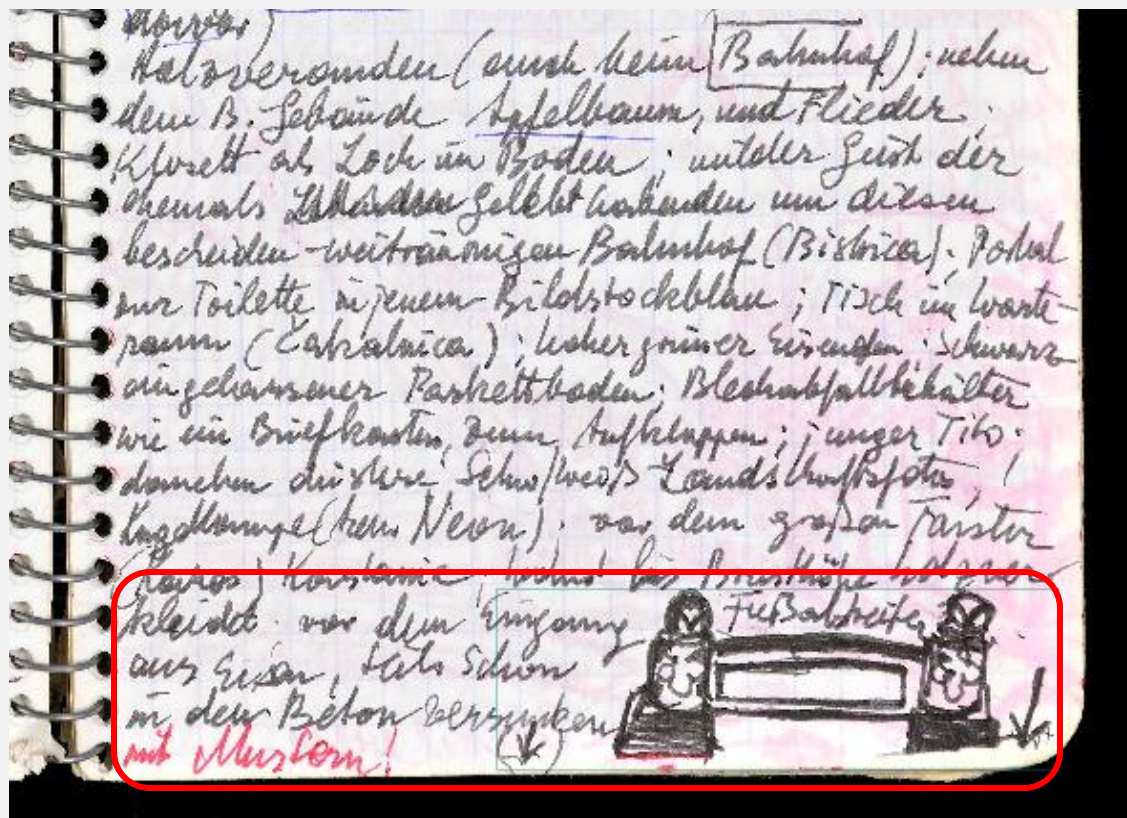 davor)
Holzveranden (auch beim Bahnhof); neben
dem B. Gebäude Apfelbaum, und Flieder.
Klosett als Loch im Boden; milder Geist der
ehemals gelebt habenden um diesen
bescheiden-weiträumigen Bahnhof (Bistrica). Portal
zur Toilette in jenem Bildstockblau; Tisch im Warte-
raum (Čakalnica); hoher grüner Eisenofen. Schwarz
eingelassener Parkettboden; Blechabfallbehälter
wie ein Briefkasten, zum Aufklappen; junger Tito.
daneben düstere Schw/weiß Landschaftsfotos,!
Kugellampe (kein Neon). vor dem großen Fenster
Kastanie, Wand bis Brusthöhe holzver-
kleidet. vor dem Eingang Fußabstreifer
aus Eisen, halb schon
in den Beton versunken
(↓)
mit Mustern!